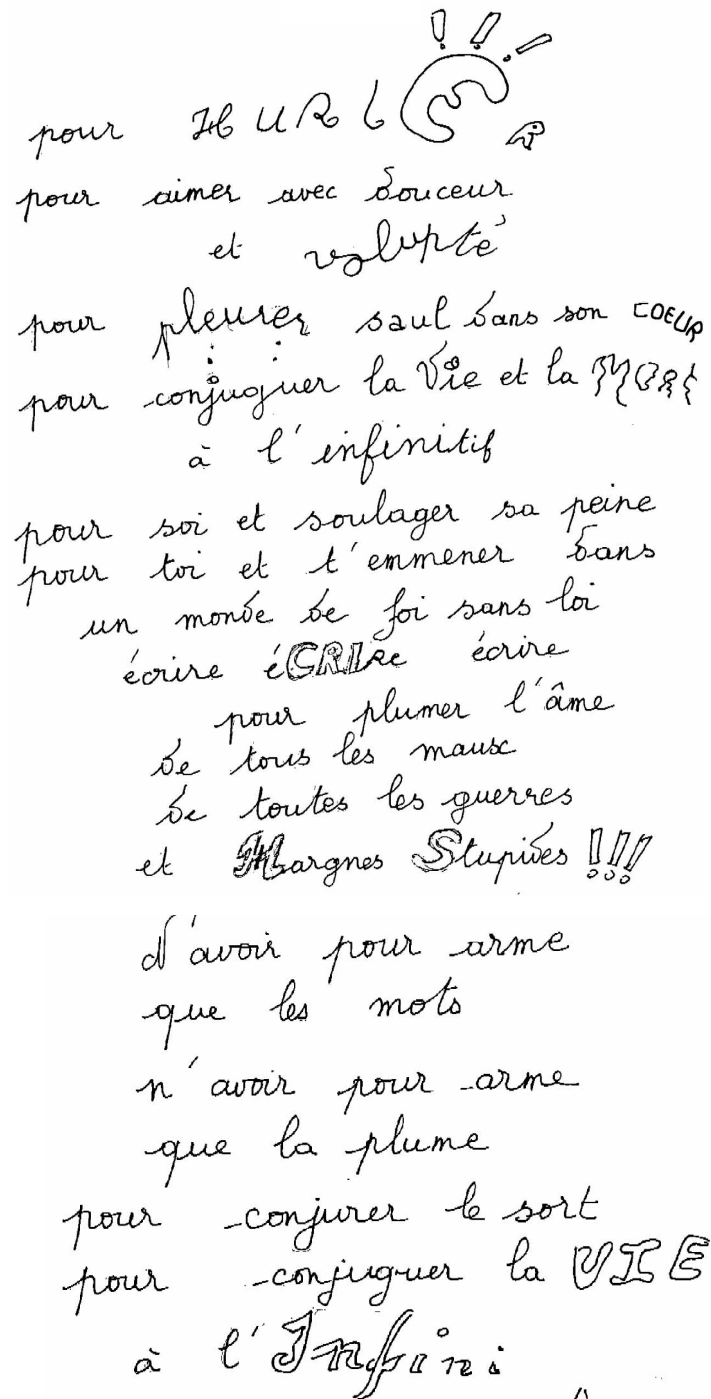 pour HURLER
pour aimer avec douceur
et volupté
pour pleurer saul dans son COEUR
pour conjuguer la Vie et la MORt
à l'infinitif
pour soi et soulager sa peine
pour toi et t'emmener dans
un monde de foi sans loi
écrire éCRIRe écrire
pour plumer l'âme
de tous les maux
de toutes les guerres
et Hargnes Stupides !!!
N'avoir pour arme
que les mots
n'avoir pour arme
que la plume
pour conjurer le sort
pour conjuguer la VIE
à l'Infini